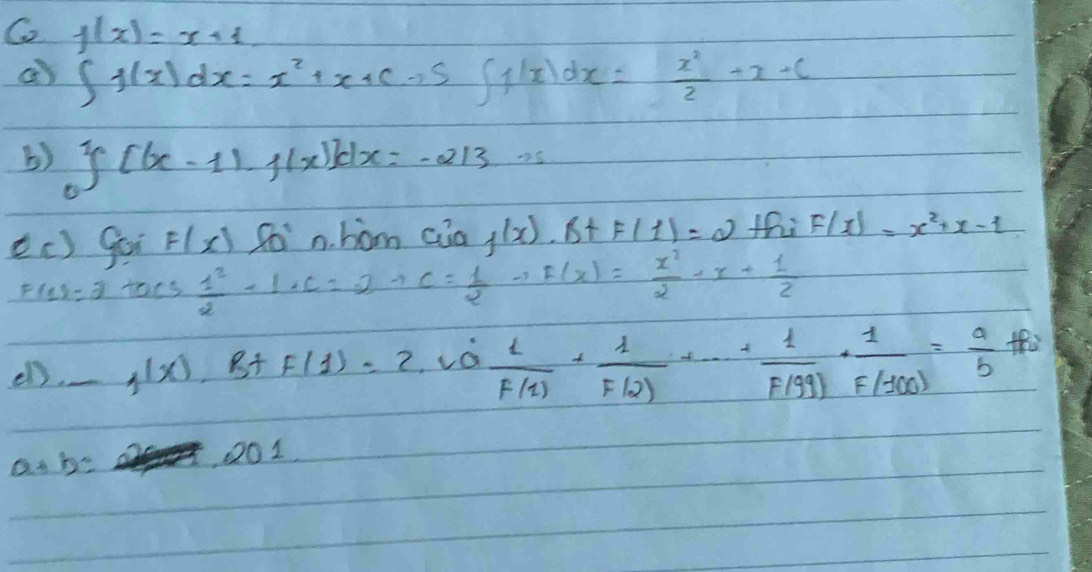 Có f(x) = x + 1
a) ∫ f(x) dx = x² + x + C → S ∫ f(x) dx = x²/2 + x + C
b) ₀∫ [(x - 1). f(x)] dx = -2/3 → S
c) Gọi F(x) là n.hàm của f(x). Bt F(1) = 2 thì F(x) = x² + x - 1
F(1) = 2 ta có 1²/2 + 1 + C = 2 → C = 1/2 → F(x) = x²/2 + x + 1/2
d) __ f(x). Bt F(1) = 2. và 1/F(1) + 1/F(2) + ... + 1/F(99) + 1/F(100) = a/b thì
a + b = 201